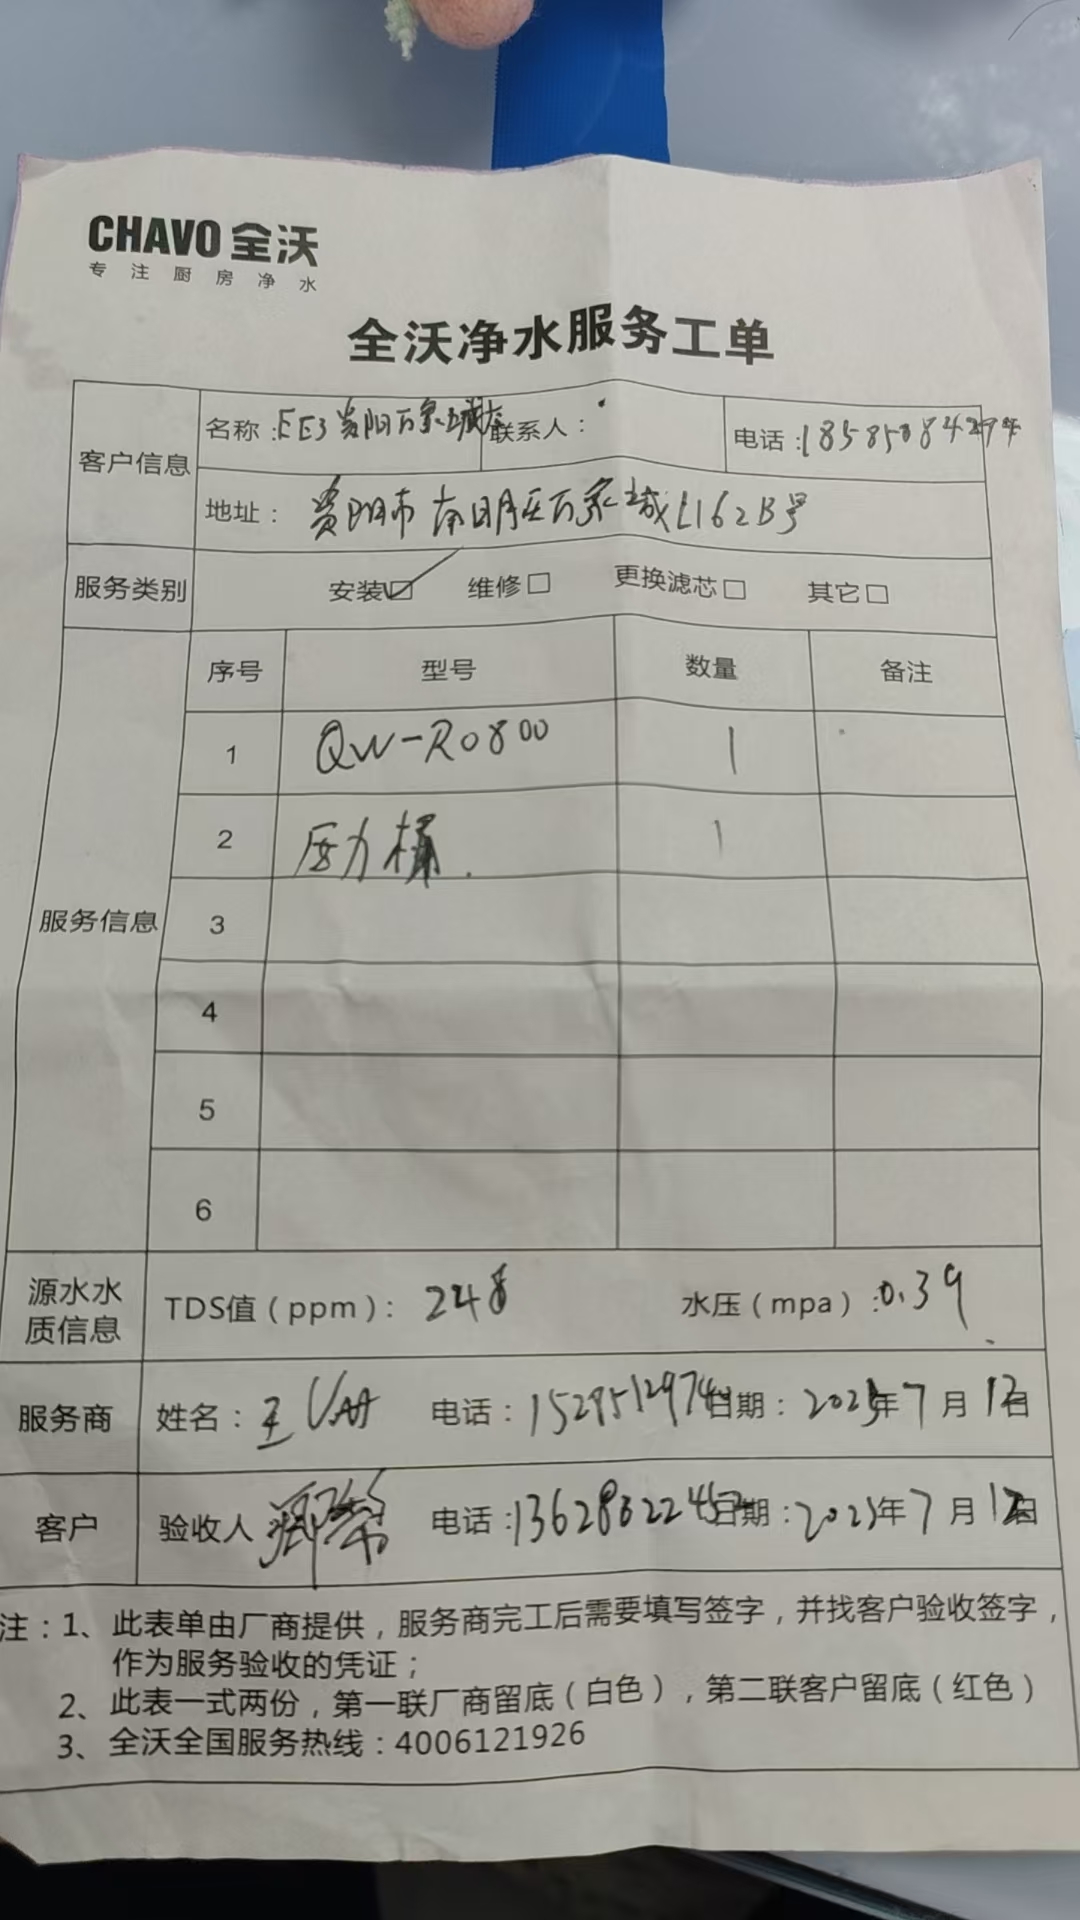 CHAVO 全沃
专注厨房净水
全沃净水服务工单
客户信息
名称：EE3 贵阳万象城店 联系人： 电话：
地址：贵阳市南明区万象城L162B号
服务类别 安装☑ 维修□ 更换滤芯□ 其它□
服务信息
序号 型号 数量 备注
1 QW-RO800 1
2 压力桶 1
3
4
5
6
源水水质信息
TDS值（ppm）：248 水压（mpa）：0.39
服务商 姓名：王 电话： 日期：年7月12日
客户 验收人 电话： 日期：年7月12日
注：1、此表单由厂商提供，服务商完工后需要填写签字，并找客户验收签字，
作为服务验收的凭证；
2、此表一式两份，第一联厂商留底（白色），第二联客户留底（红色）
3、全沃全国服务热线：4006121926